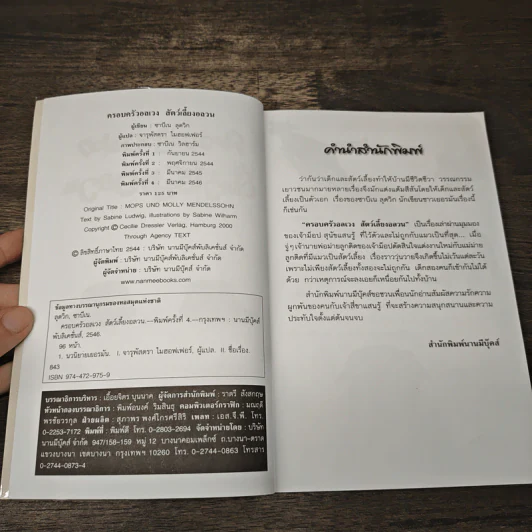 ครอบครัวอลเวง สัตว์เลี้ยงอลวน
ผู้เขียน : ซาบีเน ลุดวิก
ผู้แปล : จารุพัสตรา ไมฮอฟเฟอร์
ภาพประกอบ : ซาบีเน วิลฮาร์ม
พิมพ์ครั้งที่ 1 : กันยายน 2544
พิมพ์ครั้งที่ 2 : พฤศจิกายน 2544
พิมพ์ครั้งที่ 3 : มีนาคม 2545
พิมพ์ครั้งที่ 4 : มีนาคม 2546
ราคา บาท
Original Title : MOPS UND MOLLY MENDELSSOHN
Text by Sabine Ludwig, Illustrations by Sabine Wilharm
Copyright © Cecilie Dressler Verlag, Hamburg 2000
Through Agency TEXT
© ลิขสิทธิ์ภาษาไทย 2544 : บริษัท นานมีบุ๊คส์พับลิเคชั่นส์ จำกัด
ผู้จัดพิมพ์ : บริษัท นานมีบุ๊คส์พับลิเคชั่นส์ จำกัด
ผู้จัดจำหน่าย : บริษัท นานมีบุ๊คส์ จำกัด
www.nanmeebooks.com
ข้อมูลทางบรรณานุกรมของหอสมุดแห่งชาติ
ลุดวิก, ซาบีเน
ครอบครัวอลเวง สัตว์เลี้ยงอลวน.--พิมพ์ครั้งที่ 4.--กรุงเทพฯ : นานมีบุ๊คส์
พับลิเคชั่นส์, 2546.
96 หน้า.
1. นวนิยายเยอรมัน. I. จารุพัสตรา ไมฮอฟเฟอร์, ผู้แปล. II. ชื่อเรื่อง.
843
ISBN 974-472-975-9
บรรณาธิการบริหาร : เอื้อยจิตร บุนนาค ผู้จัดการสำนักพิมพ์ : ราตรี สังสกฤษ
หัวหน้ากองบรรณาธิการ : พิมพ์อนงค์ ริมสินธุ คอมพิวเตอร์กราฟิก : มณฤดี
พรชัยวรกุล ฝ่ายผลิต : สุภาพร พงศ์ไกรศรีสิริ เพลท : เอส.จี.พี. โทร.
0-2253-7172 พิมพ์ที่ : พิมพ์ดี โทร. 0-2803-2694 จัดจำหน่ายโดย : บริษัท
นานมีบุ๊คส์ จำกัด 947/158-159 หมู่ 12 บางนาคอมเพล็กซ์ ถ.บางนา-ตราด
แขวงบางนา เขตบางนา กรุงเทพฯ 10260 โทร. 0-2744-0863 โทรสาร
0-2744-0873-4
คำนำสำนักพิมพ์
ว่ากันว่าเด็กและสัตว์เลี้ยงทำให้บ้านมีชีวิตชีวา วรรณกรรม
เยาวชนมากมายหลายเรื่องจึงมักแต่งแต้มสีสันโดยให้เด็กและสัตว์
เลี้ยงเป็นตัวเอก เรื่องของซาบีเน ลุดวิก นักเขียนชาวเยอรมันเรื่องนี้
ก็เช่นกัน
"ครอบครัวอลเวง สัตว์เลี้ยงอลวน" เป็นเรื่องเล่าผ่านมุมมอง
ของเจ้าม็อป สุนัขแสนรู้ ที่ไว้ตัวและไม่ถูกกับแมวเป็นที่สุด... เมื่อ
จู่ๆ เจ้านายพ่อม่ายลูกติดของเจ้าม็อปตัดสินใจแต่งงานใหม่กับแม่ม่าย
ลูกติดที่มีแมวเป็นสัตว์เลี้ยง เรื่องราววุ่นวายจึงเกิดขึ้นไม่เว้นแต่ละวัน
เพราะไม่เพียงสัตว์เลี้ยงทั้งสองจะไม่ถูกกัน เด็กสองคนก็เข้ากันไม่ได้
ด้วย กว่าเหตุการณ์จะลงเอยก็เหนื่อยกันไปทั้งบ้าน
สำนักพิมพ์นานมีบุ๊คส์ขอชวนเพื่อนนักอ่านสัมผัสความรักความ
ผูกพันของคนกับเจ้าสี่ขาแสนรู้ ที่จะสร้างความสนุกสนานและความ
ประทับใจตั้งแต่ต้นจนจบ
สำนักพิมพ์นานมีบุ๊คส์